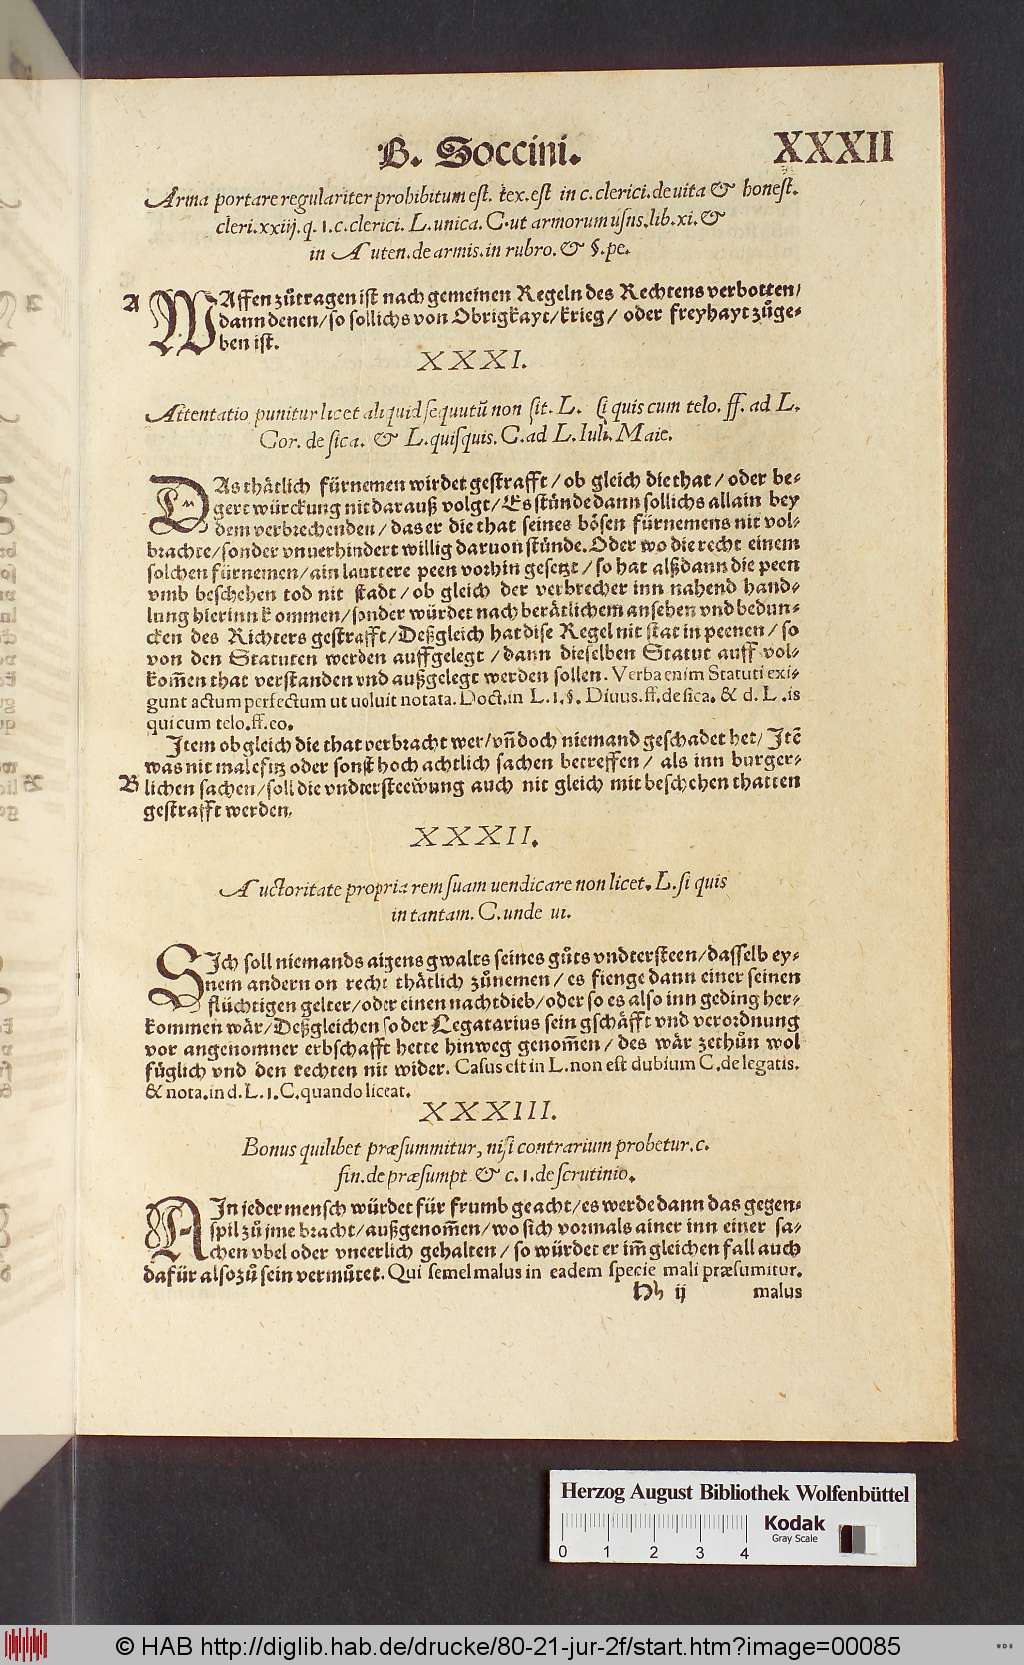 B. Soccini. XXXII
Arma portare regulariter prohibitum est. tex. est in c. clerici. de uita & honest.
cleri. xxiij. q. 1. c. clerici. L. unica. C. ut armorum usns. lib. xi. &
in Auten. de armis. in rubro. & §. pe.
A WAffen zůtragen ist nach gemeinen Regeln des Rechtens verbotten/
dann denen/ so sollichs von Obrigkayt/ krieg/ oder freyhayt zůge-
ben ist.
XXXI.
Attentatio punitur licet aliquid sequutū non sit. L. si quis cum telo. ff. ad L.
Cor. de sica. & L. quisquis. C. ad L. Iuli. Maie.
DAs thätlich fürnemen wirdet gestrafft/ ob gleich die that/ oder be-
gert würckung nit darauß volgt/ Es stünde dann sollichs allain bey
dem verbrechenden/ das er die that seines bösen fürnemens nit vol-
brachte/ sonder vnuerhindert willig daruon stünde. Oder wo die recht einem
solchen fürnemen/ ain lauttere peen vorhin gesetzt/ so hat alßdann die peen
vmb beschehen tod nit stadt/ ob gleich der verbrecher inn nahend hand-
lung hierinn kommen/ sonder würdet nach berätlichem ansehen vnd bedun-
cken des Richters gestrafft/ Deßgleich hat dise Regel nit stat in peenen/ so
von den Statuten werden auffgelegt/ dann dieselben Statut auff vol-
kom̃en that verstanden vnd außgelegt werden sollen. Verba enim Statuti exi-
gunt actum perfectum ut uoluit notata. Doct. in L. 1. §. Diuus. ff. de sica. & d. L. is
qui cum telo. ff. eo.
Item ob gleich die that verbracht wer/ vñ doch niemand geschadet het/ Itē
was nit malefitz oder sonst hoch achtlich sachen betreffen/ als inn burger-
B lichen sachen/ soll die vndtersteewung auch nit gleich mit beschehen thatten
gestrafft werden.
XXXII.
Auctoritate propria rem suam uendicare non licet. L. si quis
in tantam. C. unde ui.
SIch soll niemands aigens gwalts seines gůts vndtersteen/ dasselb ey-
nem andern on recht thätlich zůnemen/ es fienge dann einer seinen
flüchtigen gelter/ oder einen nachtdieb/ oder so es also inn geding her-
kommen wär/ Deßgleichen so der Legatarius sein gschäfft vnd verordnung
vor angenomner erbschafft hette hinweg genom̃en/ des wär zethůn wol
füglich vnd den rechten nit wider. Casus est in L. non est dubium C. de legatis.
& nota. in d. L. 1. C. quando liceat.
XXXIII.
Bonus quilibet præsummitur, nisi contrarium probetur. c.
fin. de præsumpt & c. 1. de scrutinio.
AIn jeder mensch würdet für frumb geacht/ es werde dann das gegen-
spil zů jme bracht/ außgenom̃en/ wo sich vormals ainer inn einer sa-
chen vbel oder vneerlich gehalten/ so würdet er im̃ gleichen fall auch
dafür also zů sein vermůtet. Qui semel malus in eadem specie mali præsumitur.
Hh ij malus
Herzog August Bibliothek Wolfenbüttel
Kodak
Gray Scale
0 1 2 3 4
© HAB http://diglib.hab.de/drucke/80-21-jur-2f/start.htm?image=00085